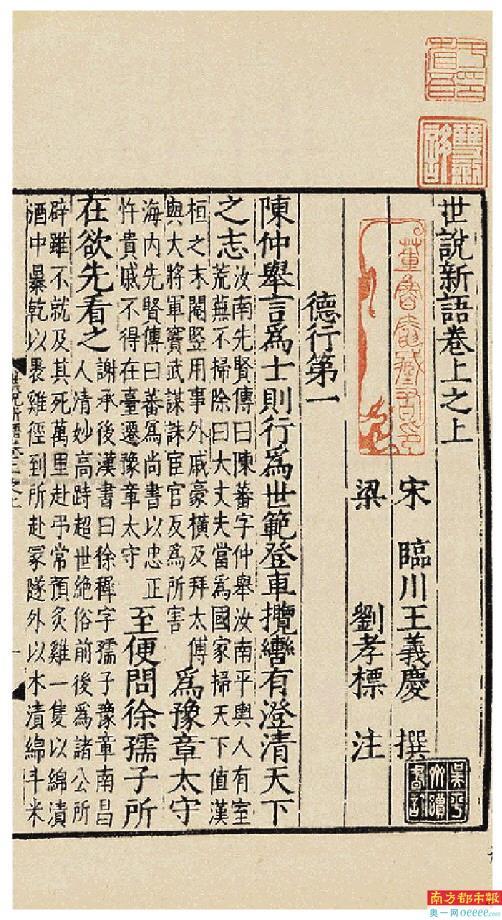 世說新語卷上之上
宋 臨川王義慶 撰
梁 劉孝標 注
德行第一
陳仲舉言為士則行為世範登車攬轡有澄清天下
之志
汝南先賢傳曰陳蕃字仲舉汝南平輿人有室
荒蕪不掃除曰大丈夫當為國家掃天下值漢
桓之末閹豎用事外戚豪橫及拜太傅
與大將軍竇武謀誅宦官反為所害
為豫章太守
海内先賢傳曰蕃為尚書以忠正
忤貴戚不得在臺遷豫章太守
至便問徐孺子所
在欲先看之
謝承後漢書曰徐稺字孺子豫章南昌
人清妙高跱超世絕俗前後為諸公所
辟雖不就及其死萬里赴弔常預炙雞一隻以綿漬
酒中暴乾以裹雞徑到所赴冢隧外以水漬綿斗米
南方都市報
奥一网oeeee.com